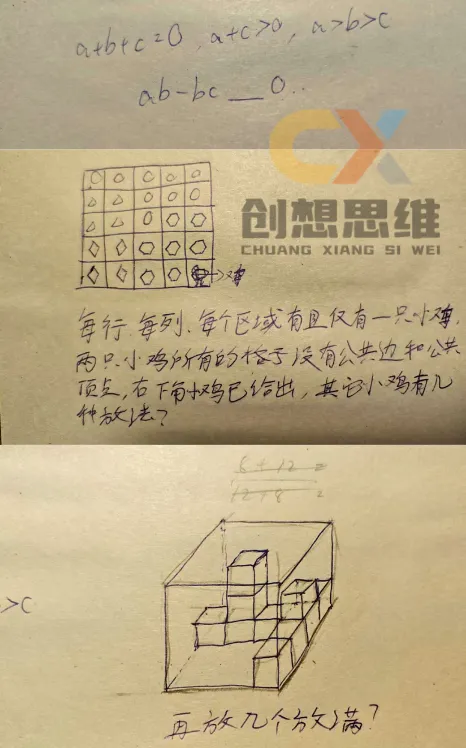 a+b+c=0, a+c>0, a>b>c
ab-bc__0..
CX
创想思维
CHUANG XIANG SI WEI
→鸡
每行、每列、每个区域有且仅有一只小鸡,
两只小鸡所有的格子没有公共边和公共
顶点,右下角小鸡已给出,其它小鸡有几
种放法?
8+12=
12+8=
>c
再放几个放满?